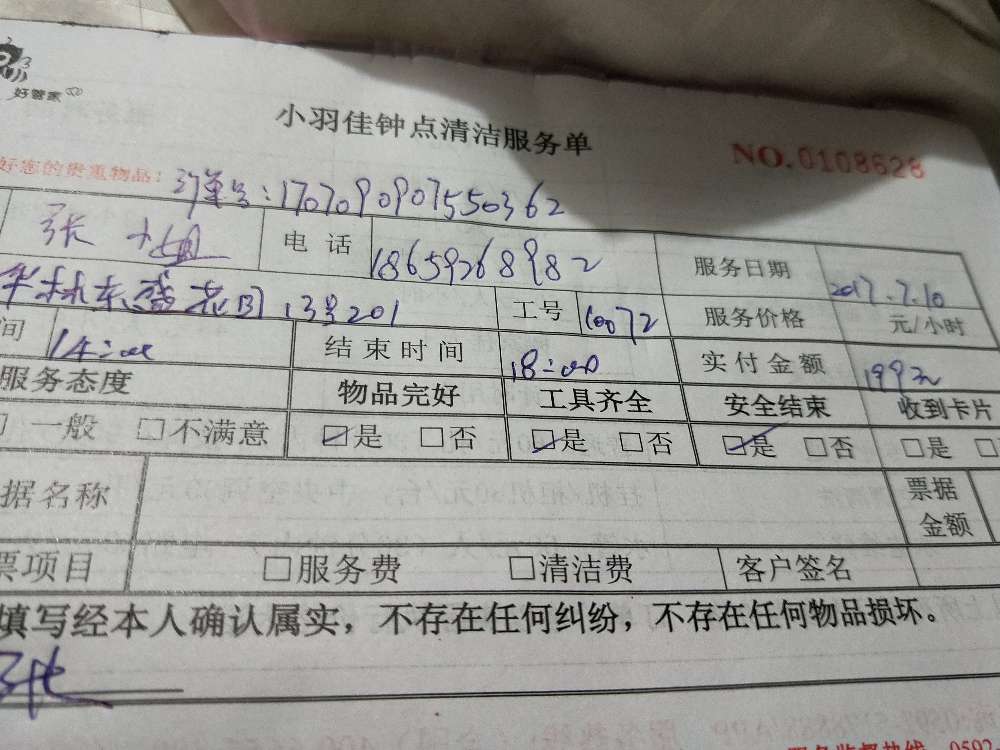 好管家
小羽佳钟点清洁服务单
NO.0108628
好您的贵重物品：订单号:170709090755036 2
张小姐 电话 18659268982 服务日期 2017.7.10
华林东盛花园13号201 工号 10072 服务价格 元/小时
间 14:00 结束时间 18:00 实付金额 199元
服务态度 物品完好 工具齐全 安全结束 收到卡片
□一般 □不满意 ☑是 □否 ☑是 □否 ☑是 □否 □是 □
据名称 票据金额
票项目 □服务费 □清洁费 客户签名
填写经本人确认属实，不存在任何纠纷，不存在任何物品损坏。
张